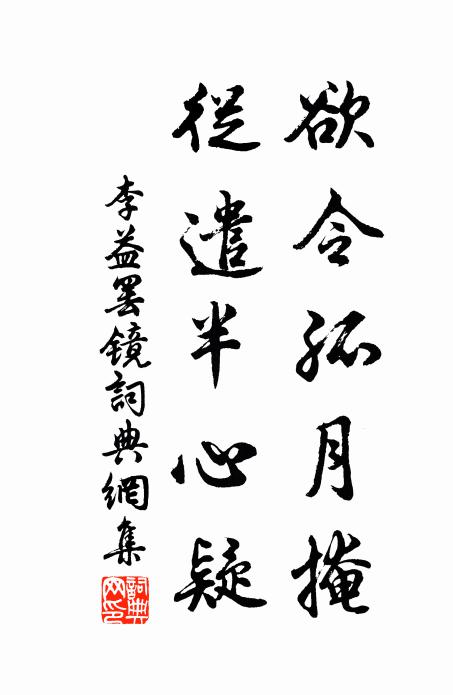 欲令孤月掩
從遣半心疑
李益罢鏡詞典網集
詞典网印